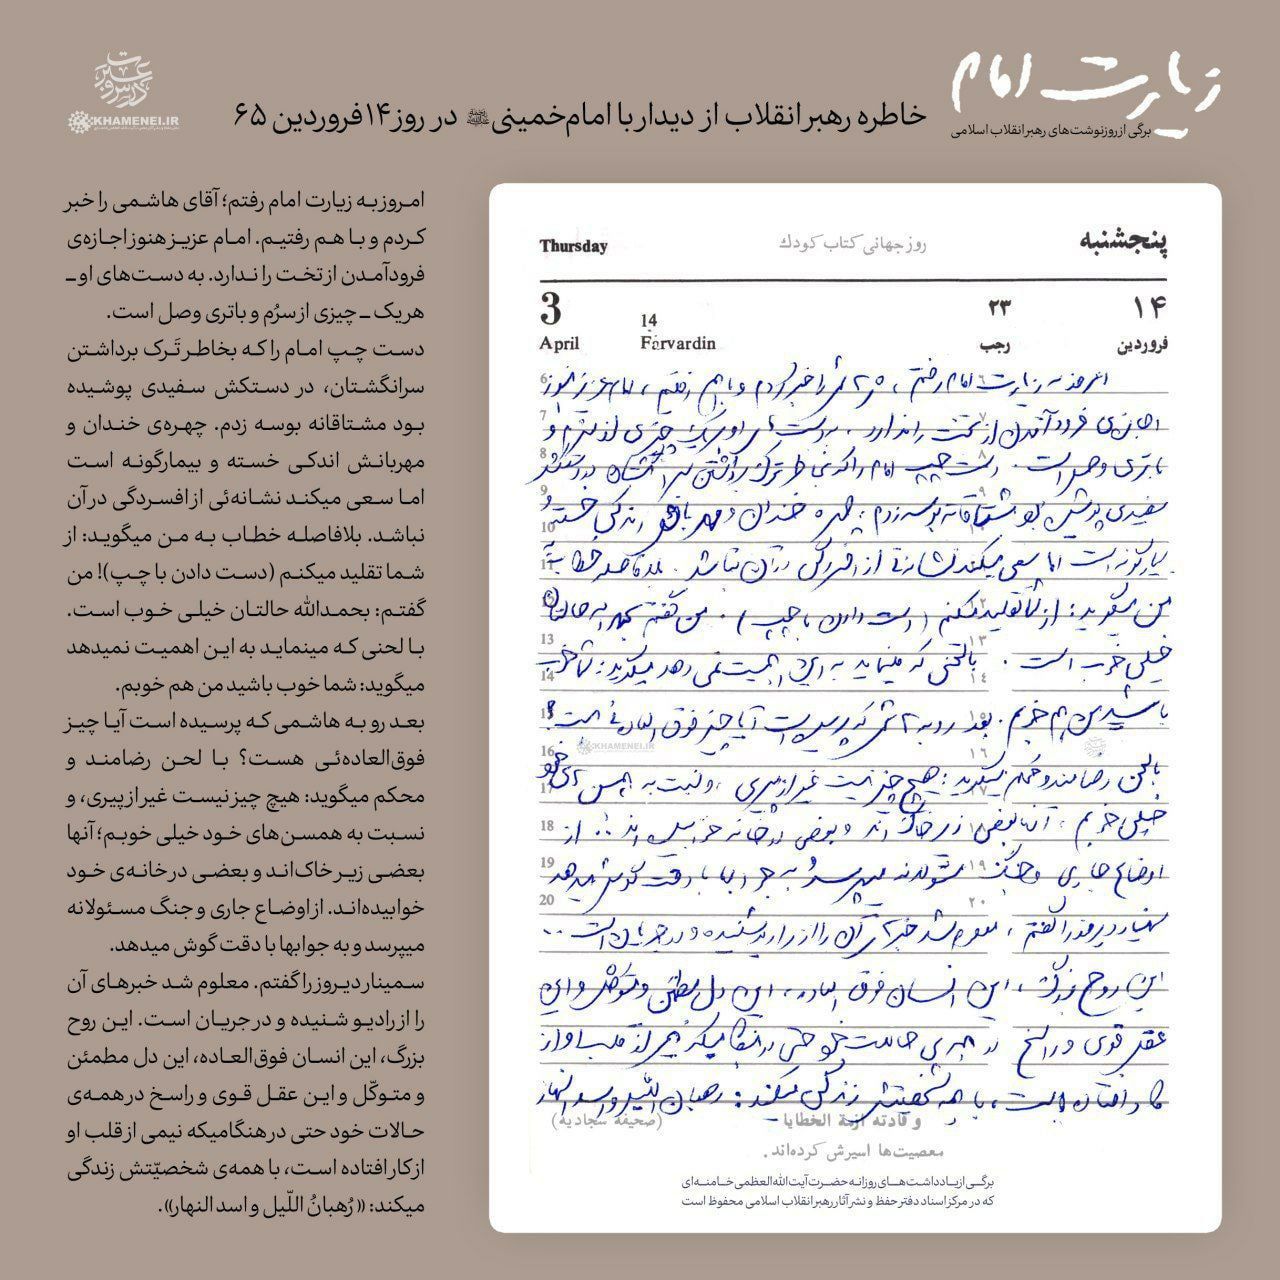 زیارت امام
برگی از روزنوشت‌های رهبر انقلاب اسلامی
خاطره رهبر انقلاب از دیدار با امام خمینی در روز ۱۴ فروردین ۶۵
KHAMENEI.IR
پنجشنبه
روز جهانی کتاب کودك
Thursday
۱۴
۲۳
14
3
فروردین
رجب
Farvardin
April
امروز به زیارت امام رفتم، هاشمی را خبر کردم و با هم رفتیم، امام عزیز هنوز
اجازه‌ی فرود آمدن از تخت را ندارد. به دست‌های او هریک چیزی از سرم و
باتری وصل است. دست چپ امام را که بخاطر ترک برداشتن سرانگشتان در دستکش
سفیدی پوشیده بود مشتاقانه بوسه زدم، چهره خندان و مهربانش اندکی خسته و
بیمارگونه است اما سعی میکند نشانه‌ئی از افسردگی در آن نباشد. بلافاصله خطاب به
من میگوید: از شما تقلید میکنم (دست دادن با چپ). من گفتم بحمدالله حالتان
خیلی خوب است. با لحنی که مینماید به این اهمیت نمی‌دهد میگوید: شما خوب
باشید من هم خوبم. بعد رو به هاشمی که پرسیده است آیا چیز فوق‌العاده‌ئی هست؟
با لحن رضامند و محکم میگوید: هیچ چیز نیست غیر از پیری، و نسبت به همسن‌های خود
خیلی خوبم، آنها بعضی زیر خاک‌اند و بعضی در خانه خوابیده‌اند.. از
اوضاع جاری و جنگ مسئولانه میپرسد و به جوابها با دقت گوش میدهد
سمینار دیروز را گفتم، معلوم شد خبرهای آن را از رادیو شنیده و در جریان است...
این روح بزرگ، این انسان فوق‌العاده، این دل مطمئن و متوکل و این
عقل قوی و راسخ در همه‌ی حالات خود حتی در هنگامیکه نیمی از قلب او از
کار افتاده است، با همه‌ی شخصیتش زندگی میکند: رهبان اللیل و اسد النهار
و قادته ازمة الخطایا
(صحیفهٔ سجادیه)
معصیت‌ها اسیرش کرده‌اند.
برگی از یادداشت‌های روزانه حضرت آیت‌الله العظمی خامنه‌ای
که در مرکز اسناد دفتر حفظ و نشر آثار رهبر انقلاب اسلامی محفوظ است
6
7
8
9
10
11
13
14
15
16
17
18
19
20
KHAMENEI.IR
امروز به زیارت امام رفتم؛ آقای هاشمی را خبر
کردم و با هم رفتیم. امام عزیز هنوز اجازه‌ی
فرودآمدن از تخت را ندارد. به دست‌های او ـ
هریک ـ چیزی از سرُم و باتری وصل است.
دست چپ امام را که بخاطر تَرک برداشتن
سرانگشتان، در دستکش سفیدی پوشیده
بود مشتاقانه بوسه زدم. چهره‌ی خندان و
مهربانش اندکی خسته و بیمارگونه است
اما سعی میکند نشانه‌ئی از افسردگی در آن
نباشد. بلافاصله خطاب به من میگوید: از
شما تقلید میکنم (دست دادن با چپ)! من
گفتم: بحمدالله حالتان خیلی خوب است.
با لحنی که مینماید به این اهمیت نمیدهد
میگوید: شما خوب باشید من هم خوبم.
بعد رو به هاشمی که پرسیده است آیا چیز
فوق‌العاده‌ئی هست؟ با لحن رضامند و
محکم میگوید: هیچ چیز نیست غیر از پیری، و
نسبت به همسن‌های خود خیلی خوبم؛ آنها
بعضی زیر خاک‌اند و بعضی در خانه‌ی خود
خوابیده‌اند. از اوضاع جاری و جنگ مسئولانه
میپرسد و به جوابها با دقت گوش میدهد.
سمینار دیروز را گفتم. معلوم شد خبرهای آن
را از رادیو شنیده و در جریان است. این روح
بزرگ، این انسان فوق‌العاده، این دل مطمئن
و متوکّل و این عقل قوی و راسخ در همه‌ی
حالات خود حتی در هنگامیکه نیمی از قلب او
از کار افتاده است، با همه‌ی شخصیّتش زندگی
میکند: «رُهبانُ اللّیل و اسد النهار».